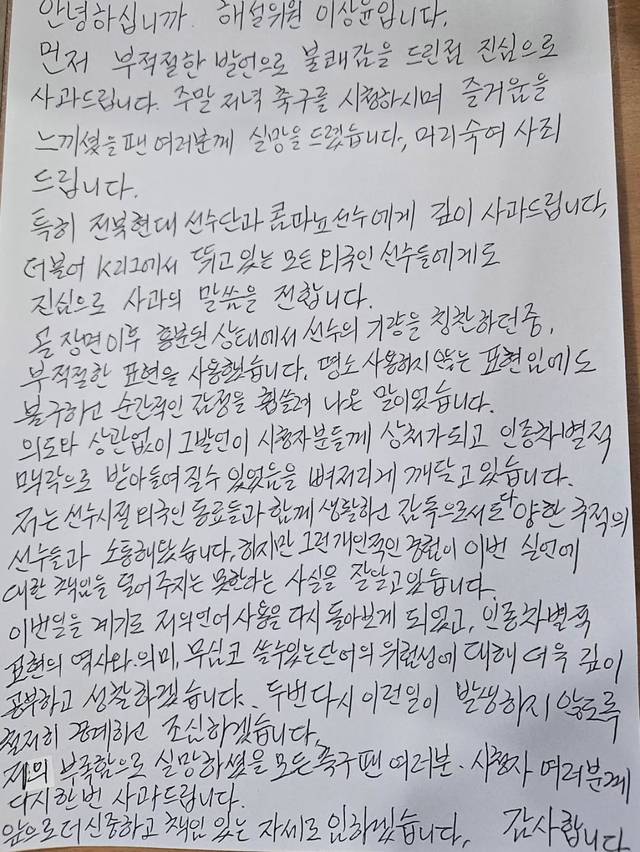 안녕하십니까. 해설위원 이상윤입니다.
먼저 부적절한 발언으로 불쾌감을 드린점 진심으로
사과드립니다. 주말 저녁 축구를 시청하시며 즐거움을
느끼셨을 팬 여러분께 실망을 드렸습니다, 머리숙여 사죄
드립니다.
특히 전북현대 선수단과 콤파뇨선수에게 깊이 사과드립니다,
더불어 K리그에서 뛰고 있는 모든 외국인 선수들에게도
진심으로 사과의 말씀을 전합니다.
골 장면이후 흥분된 상태에서 선수의 기량을 칭찬하던 중,
부적절한 표현을 사용했습니다. 평소 사용하지 않는 표현임에도
불구하고 순간적인 감정을 휩쓸려 나온 말이었습니다.
의도와 상관없이 그발언이 시청자분들께 상처가되고 인종차별적
맥락으로 받아들여질수 있었음을 뼈저리게 깨닫고 있습니다.
저는 선수시절 외국인 동료들과 함께 생활하고 감독으로서도 다양한 국적의
선수들과 소통해왔습니다, 하지만 그런개인적인 경험이 이번 실언에
대한 책임을 덜어주지는 못한다는 사실을 잘알고있습니다.
이번일을 계기로 저의언어사용을 다시 돌아보게 되었고, 인종차별적
표현의 역사와 의미, 무심코 쓸수있는 단어의 위험성에 대해 더욱 깊이
공부하고 성찰하겠습니다. 두번다시 이런일이 발생하지 않도록
철저히 경계하고 조심하겠습니다.
저의 부족함으로 실망하셨을 모든축구팬 여러분. 시청자 여러분께
다시한번 사과드립니다.
앞으로 더 신중하고 책임 있는 자세로 임하겠습니다, 감사합니다